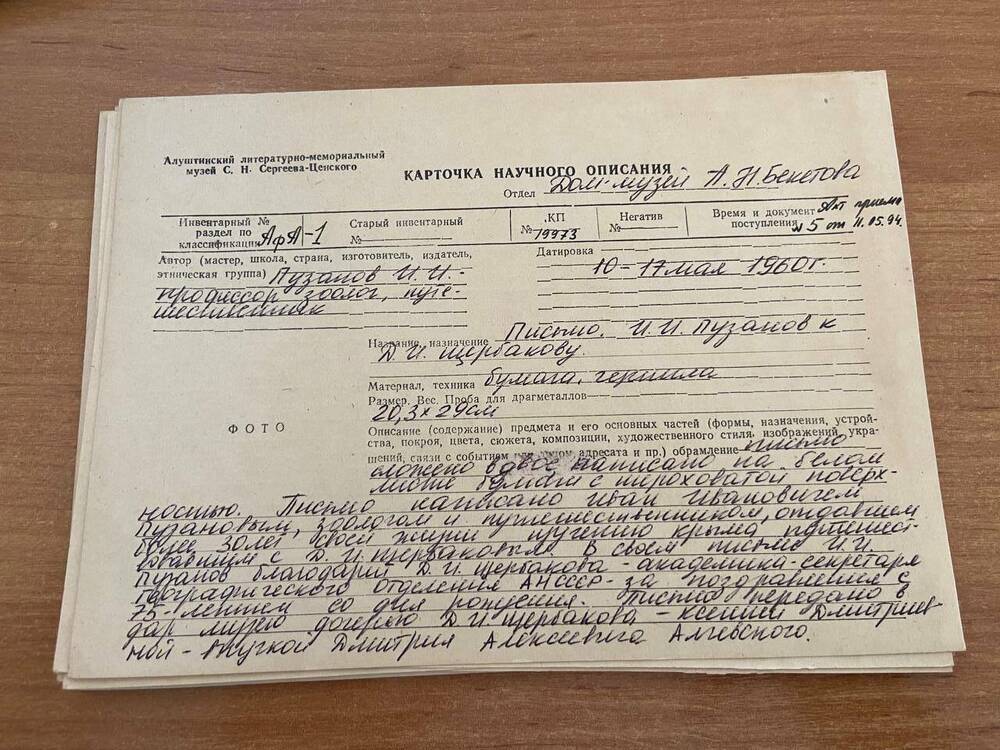 Алуштинский литературно-мемориальный
музей С. Н. Сергеева-Ценского
КАРТОЧКА НАУЧНОГО ОПИСАНИЯ
Отдел Дом-музей А.Н.Бекетова
Инвентарный №
раздел по
классификации АфА-1
Старый инвентарный
№
КП
№ 19973
Негатив
№
Время и документ Акт приема
поступления №5 от 11.05.94.
Автор (мастер, школа, страна, изготовитель, издатель,
этническая группа) Пузанов И.И.-
профессор зоолог, путе-
шественник
Датировка
10-17 мая 1960г.
Название, назначение Письмо. И.И. Пузанов к
Д.И. Щербакову.
Материал, техника бумага, чернила
Размер. Вес. Проба для драгметаллов
20,3х29см
ФОТО
Описание (содержание) предмета и его основных частей (формы, назначения, устрой-
ства, покроя, цвета, сюжета, композиции, художественного стиля, изображений, укра-
шений, связи с событием адресата и пр.) обрамление письмо
сложено вдвое написано на белом
листе бумаги с шероховатой поверх-
ностью. Письмо написано Иван Ивановичем
Пузановым, зоологом и путешественником, отдавшем
более 30 лет своей жизни изучению Крыма, путешест-
вовавшим с Д.И. Щербаковым. В своем письме И.И.
Пузанов благодарил Д.И. Щербакова - академика-секретаря
географического отделения АНСССР - за поздравления с
75-летием со дня рождения. Письмо передано в
дар музею дочерью Д.И Щербакова - Ксенией Дмитриев-
ной - внучкой Дмитрия Алексеевича Алчевского.